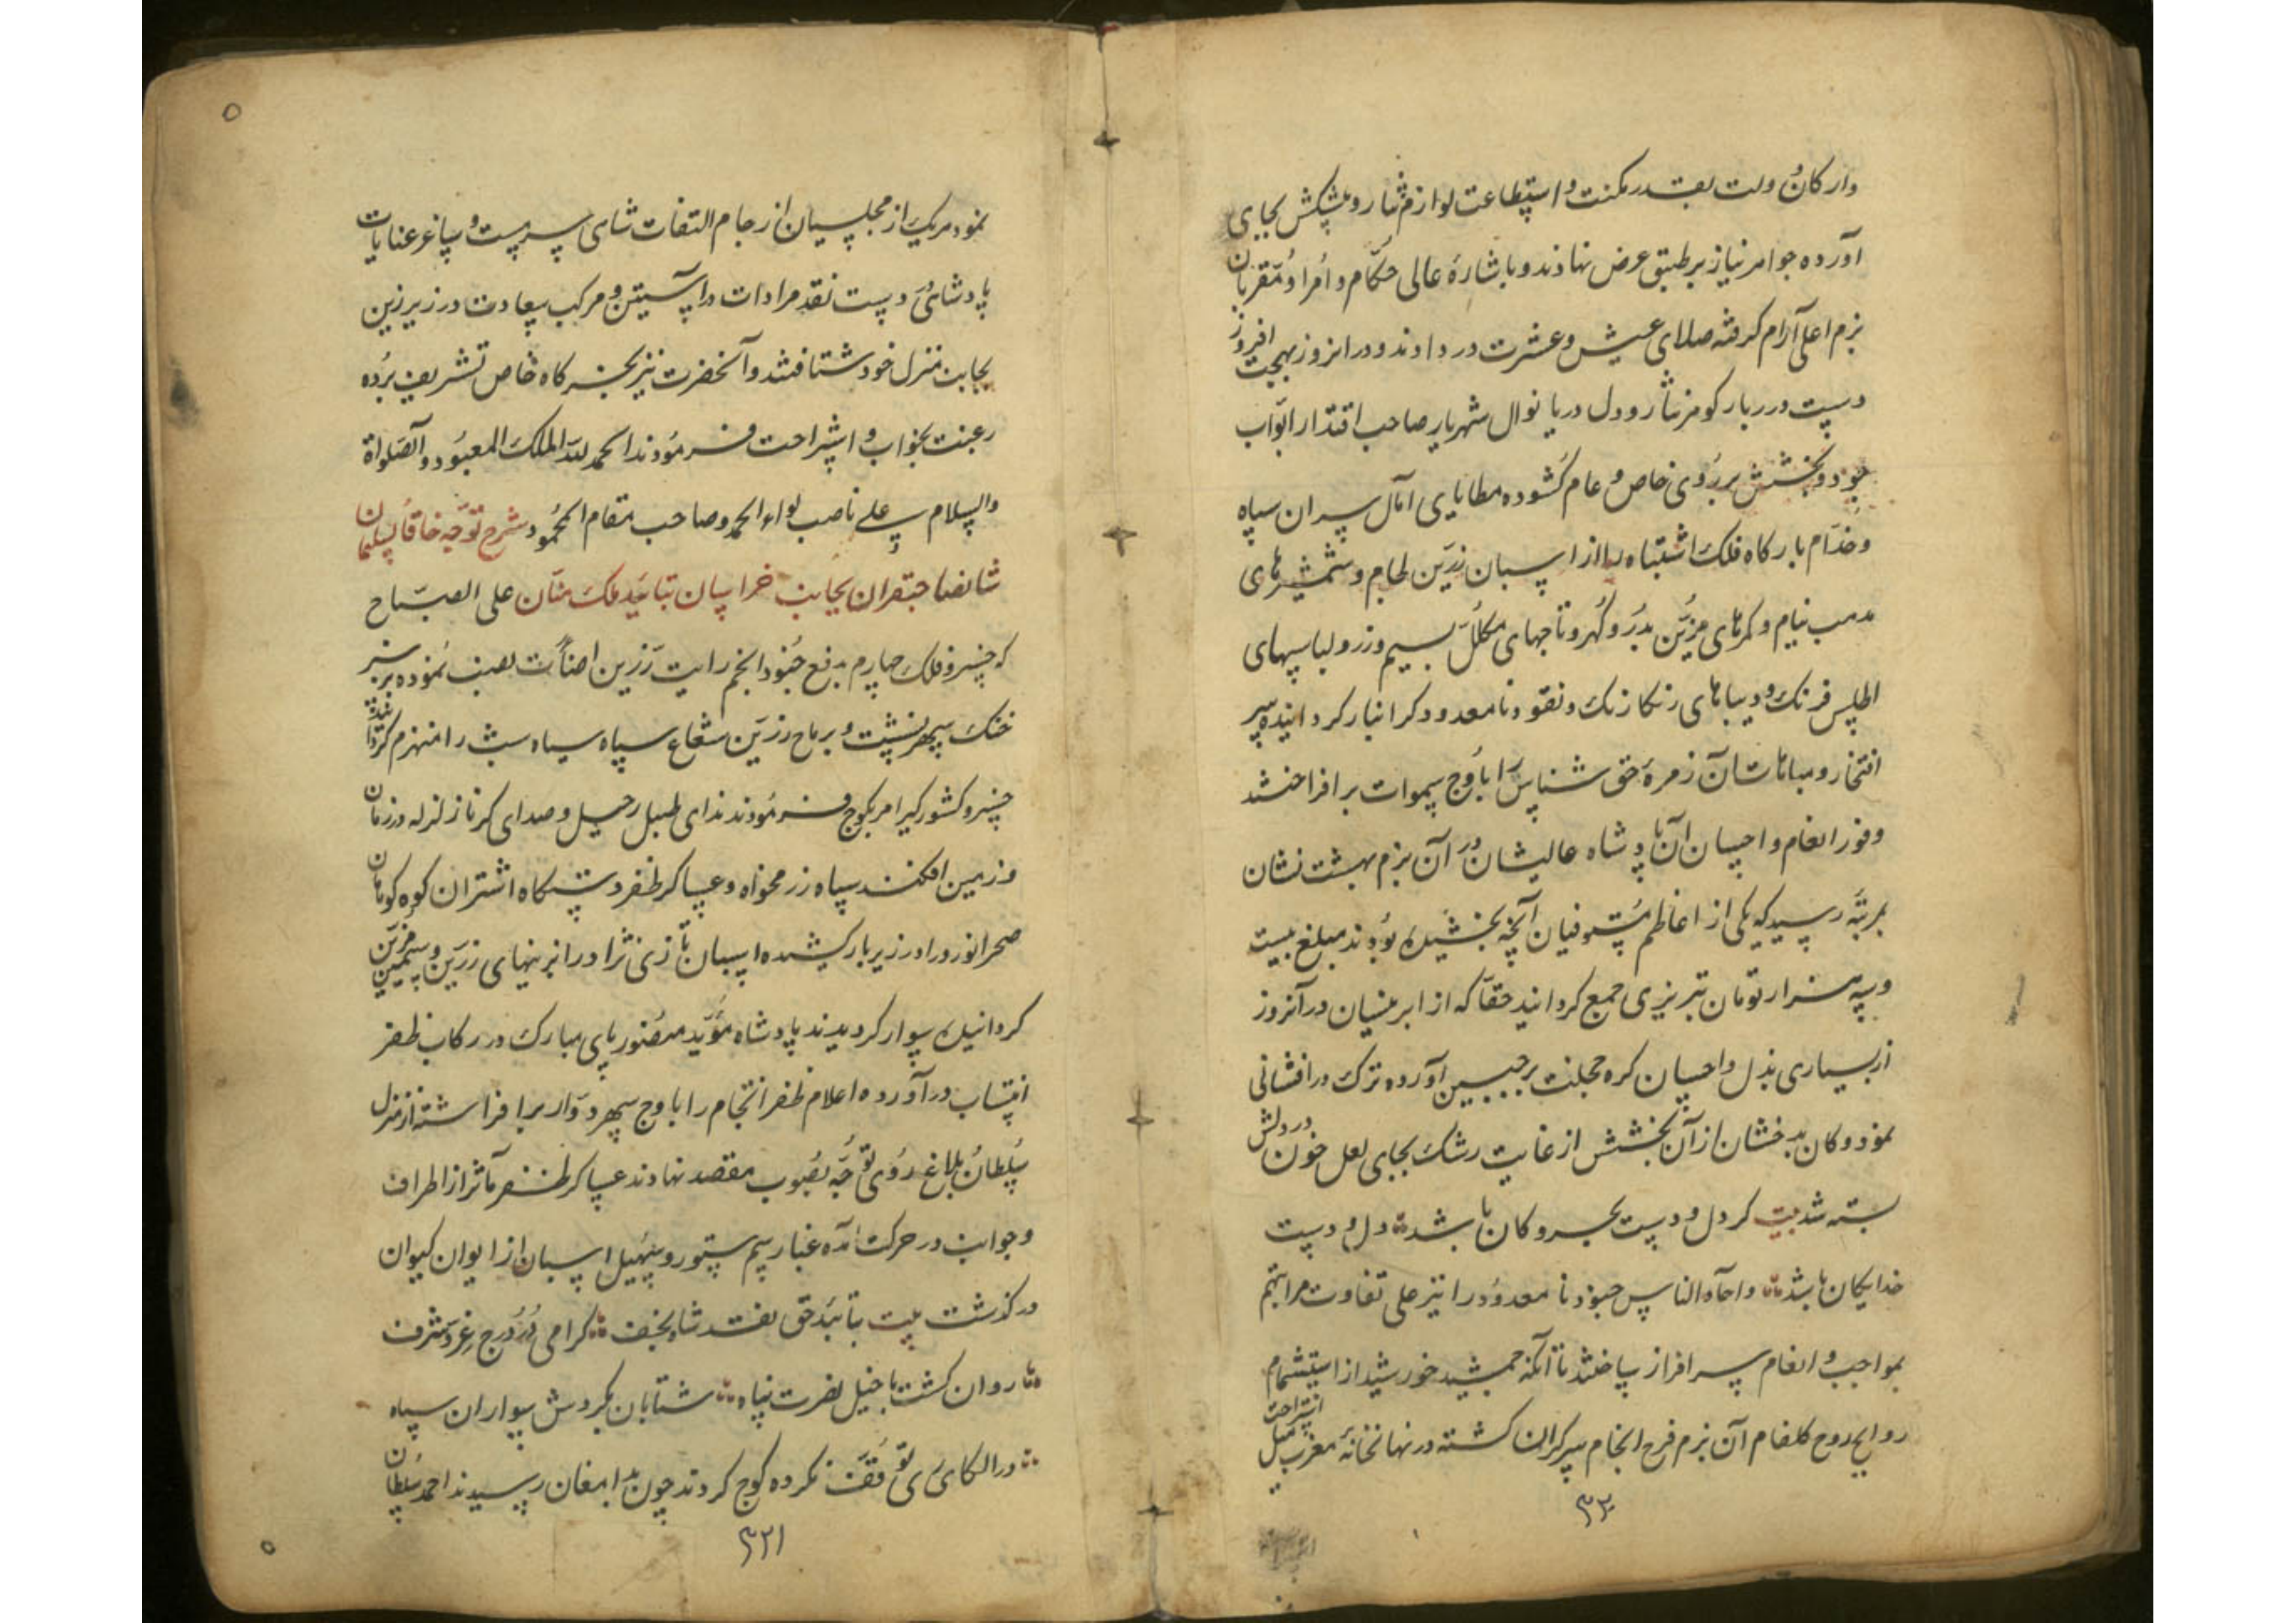 وارکان دولت بقدر مکنت و استطاعت لوازم نثار و پیشکش بجای
آورده جواهر نیاز بر طبق عرض نهادند و باشارهٔ عالی حکّام و اُمرا و مُقرّبان
بزم اعلی آرام کرفته صلای عیش و عشرت در دادند و در انروز بهجت افروز
دست درربار کوهر نثار و دل دریا نوال شهریار صاحب اقتدار ابواب
جود و بخشش بر رُوی خاص و عام کشوده مطایای آمال سران سپاه
و خدّام بارکاه فلک اشتباه را از اسبان زرّین لجام و شمشیرهای
مذهب نیام و کمرهای مزیّن بدُرّ و کُهر و تاجهای مکلّل بسیم و زر و لباسهای
اطلس فرنک و دیباهای رنکارنک و نقود نامعدود کرانبار کردانیده سر
افتخار و مباهات آن زمرهٔ حق شناس را باوج سموات برافراختند
وفور انعام و احسان آن پادشاه عالیشان در آن بزم بهشت نشان
بمرتبهٔ رسید که یکی از اعاظم مستوفیان آنچه بخشیده بُودند مبلغ بیست
و سه هزار تومان تبریزی جمع کردانید حقّا که از ابر نیسان در آنروز
از بسیاری بذل و احسان کره خجلت بر جبین آورده ترک درافشانی
نمود و کان بدخشان از آن بخشش از غایت رشک بجای لعل خون در دلش
بسته شد بیت کر دل و دست بحر و کان باشد دل و دست
خدایکان باشد و احاد الناس جنود نامعدُود را نیز علی تفاوت مراتبهم
بمواجب و انعام سرافراز ساختند تا آنکه جمشید خورشید از استشمام
روایح روح کلفام آن بزم فرح انجام سرکران کشته در نهانخانهٔ مغرب میل استراحت
۳۲۰
نمود هر یک از مجلسیان از جام التفات شاهی سرمست و ساغر عنایات
پادشاهی دست نقد مرادات در آستین و مرکب سعادت در زیر زین
بجانب منزل خود شتافتند و آنحضرت نیز بخرکاه خاص تشریف برُده
رغبت بخواب و استراحت فرمُودند الحمد لله الملک المعبُود و الصلواة
والسلام علی ناصب لواء الحمد و صاحب مقام المحمُود شرح توجّه خاقان سلیمان
شان صاحبقران بجانب خراسان بتائید ملک منّان علی الصبّاح
که خسرو فلک چهارم بدفع جُنود انجم رایت زرّین اضائت نصب نمُوده بر سبز
خنک سپهر نشست و برماح زرّین شعاع سپاه سیاه شب را منهزم کردانید
خسرو کشورکیر امر بکوچ فرمُودند ندای طبل رحیل و صدای کرنا زلزله در زمان
و زمین افکند سپاه رزمخواه و عساکر ظفر دستکاه اشتران کوه کوهان
صحرانورد را در زیر بار کشیده اسبان تازی نژاد را بزینهای زرّین و سیمین مزیّن
کردانیده سوار کردیدند پادشاه مؤیّد منصُور پای مبارک در رکاب ظفر
انتساب در آورده اعلام ظفر انتجام را باوج سپهر دوّار برافراشته از منزل
سُلطان بلاغ رُوی توّجه بصُوب مقصد نهادند عساکر ظفر مآثر از اطراف
و جوانب در حرکت آمده غبار سم ستور و صهیل اسبان از ایوان کیوان
درکذشت بیت بتائید حق نقد شاه نجف کرامی دُر دُرج عِزّ و شرف
روان کشت با خیل نصرت پناه شتابان بکردش سواران سپاه
در الکای ری توقّف نکرده کوچ کردند چون بدامغان رسیدند احمد سُلطان
۳۲۱